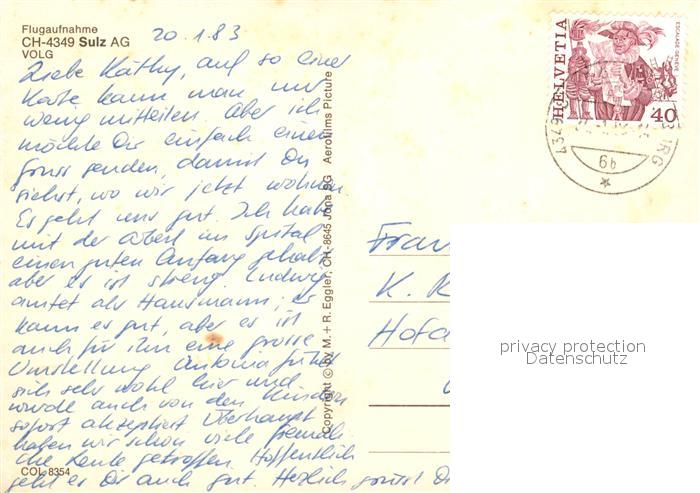 Flugaufnahme
CH-4349 Sulz AG
VOLG
20.1.83
Liebe Käthy, auf so einer
Karte kann man nur
wenig mitteilen. Aber ich
möchte Dir einfach einen
Gruss senden, damit Du
siehst, wo wir jetzt wohnen
Es geht uns gut. Ich habe
mit der Arbeit im Spital
einen guten Anfang gehabt
aber es ist streng. Ludwig
amtet als Hausmann; er
kann es gut, aber es ist
auch für ihn eine grosse
Umstellung. Antonia fühlt
sich sehr wohl hier und
wurde auch von den Kindern
sofort akzeptiert. Überhaupt
haben wir schon viele freundli
che Leute getroffen. Hoffentlich
geht es Dir auch gut. Herzlich grüsst D
COL 8354
Copyright © by M. + R. Eggler, CH-8645 Jona SG Aerofilms Picture
HELVETIA
ESCALADE GENÈVE
40
4349
RG
6b
Frau
K. K
Hofa
privacy protection
Datenschutz